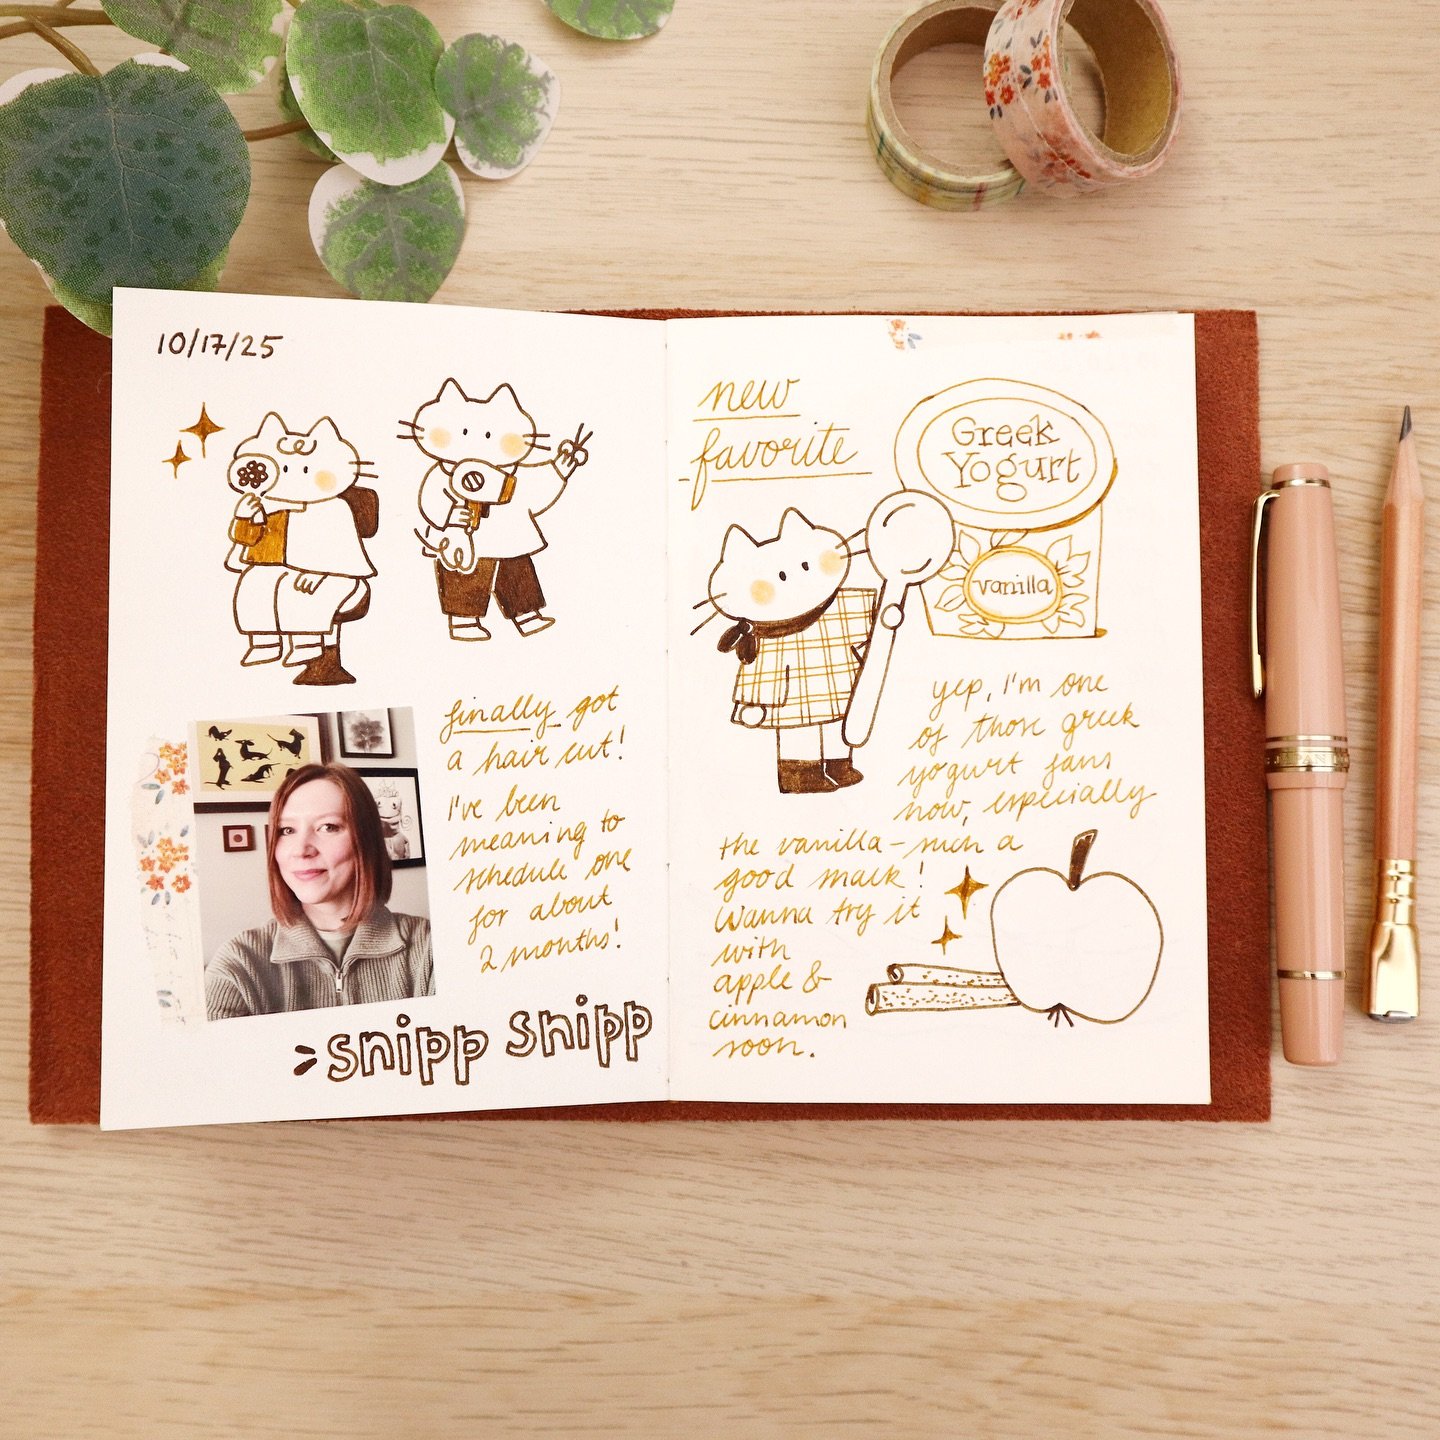 10/17/25
finally got
a hair cut!
I've been
meaning to
schedule one
for about
2 months!
snipp snipp
new
favorite
Greek
Yogurt
vanilla
yep, I'm one
of those greek
yogurt fans
now, especially
the vanilla - such a
good snack!
Wanna try it
with
apple &
cinnamon
soon.